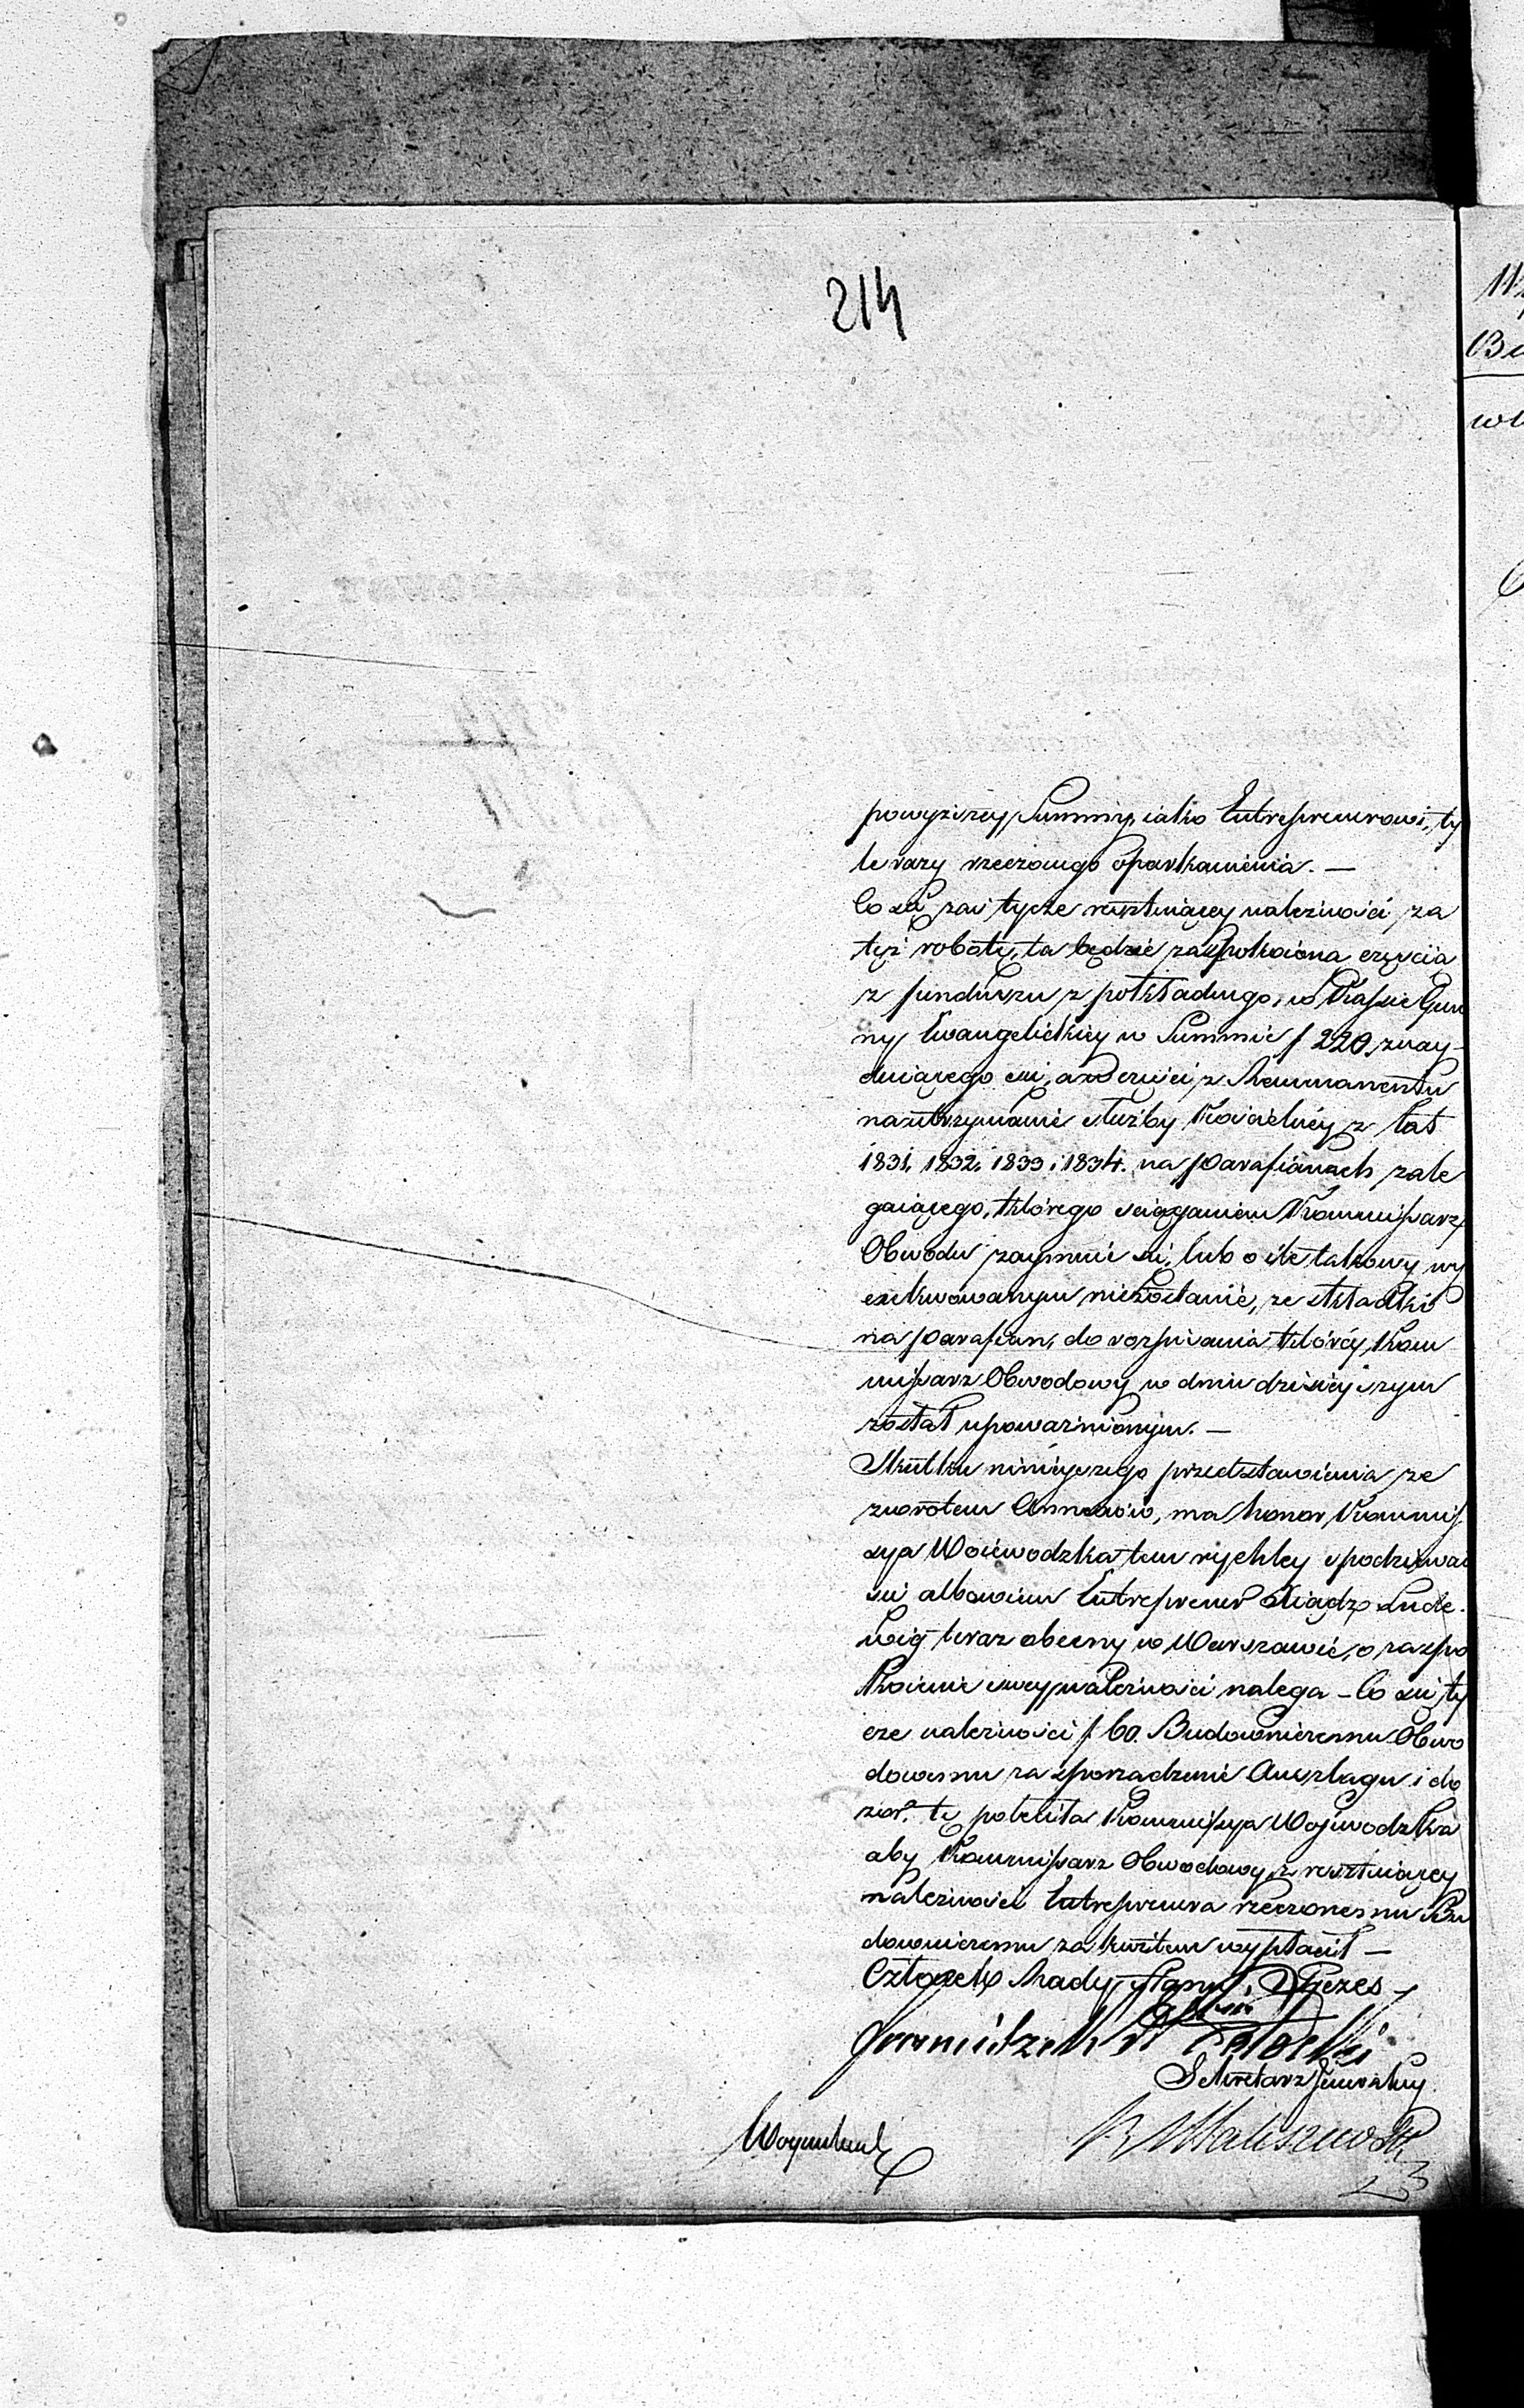 214
powyższey Summy, iako Entreprenerowi, ty
le razy rzeczonego oparkanienia. —
Co się zaś tycze resztuiącey należności za
tęż robotę, ta będzie zaspokoiona częścią
z funduszu z pokładnego, w Kassie Gmi
ny Ewangelickiey w Summie f 220. znay-
duiącego się, a w części z Remanentu
na utrzymanie służby Kościelnéy z lat
1831, 1832, 1833 i 1834. na parafianach zale
gaiącego, którego ściąganiem Kommissarz
Obwodu zaymuie się, lub o ile takowy wy
exekwowanym niezostanie, ze składki
na parafian, do rozpisania któréy, Kom
missarz Obwodowy w dniu dzisieyszym
został upoważnionym. —
Skutku ninieyszego przedstawienia ze
zwrotem Annexów, ma honor Kommis
sya Woiewodzka tem rychley spodziewać
się albowiem Entreprener Xiądz Lude-
wig teraz obecny w Warszawie, o zaspo
koienie swey należności nalega – Co się ty
cze należności f 60. Budowniczemu Obwo
dowemu za sporządzenie Anszlagu i do
zór, tę poleciła Kommissya Wojewodzka
aby Kommissarz Obwodowy z resztuiącey
należności Entreprenera rzeczonemu Bu
downiczemu za kwitem wypłacił —
Członek Rady Stanu, Prezes
Sekretarz Jeneralny
R Maliszewski